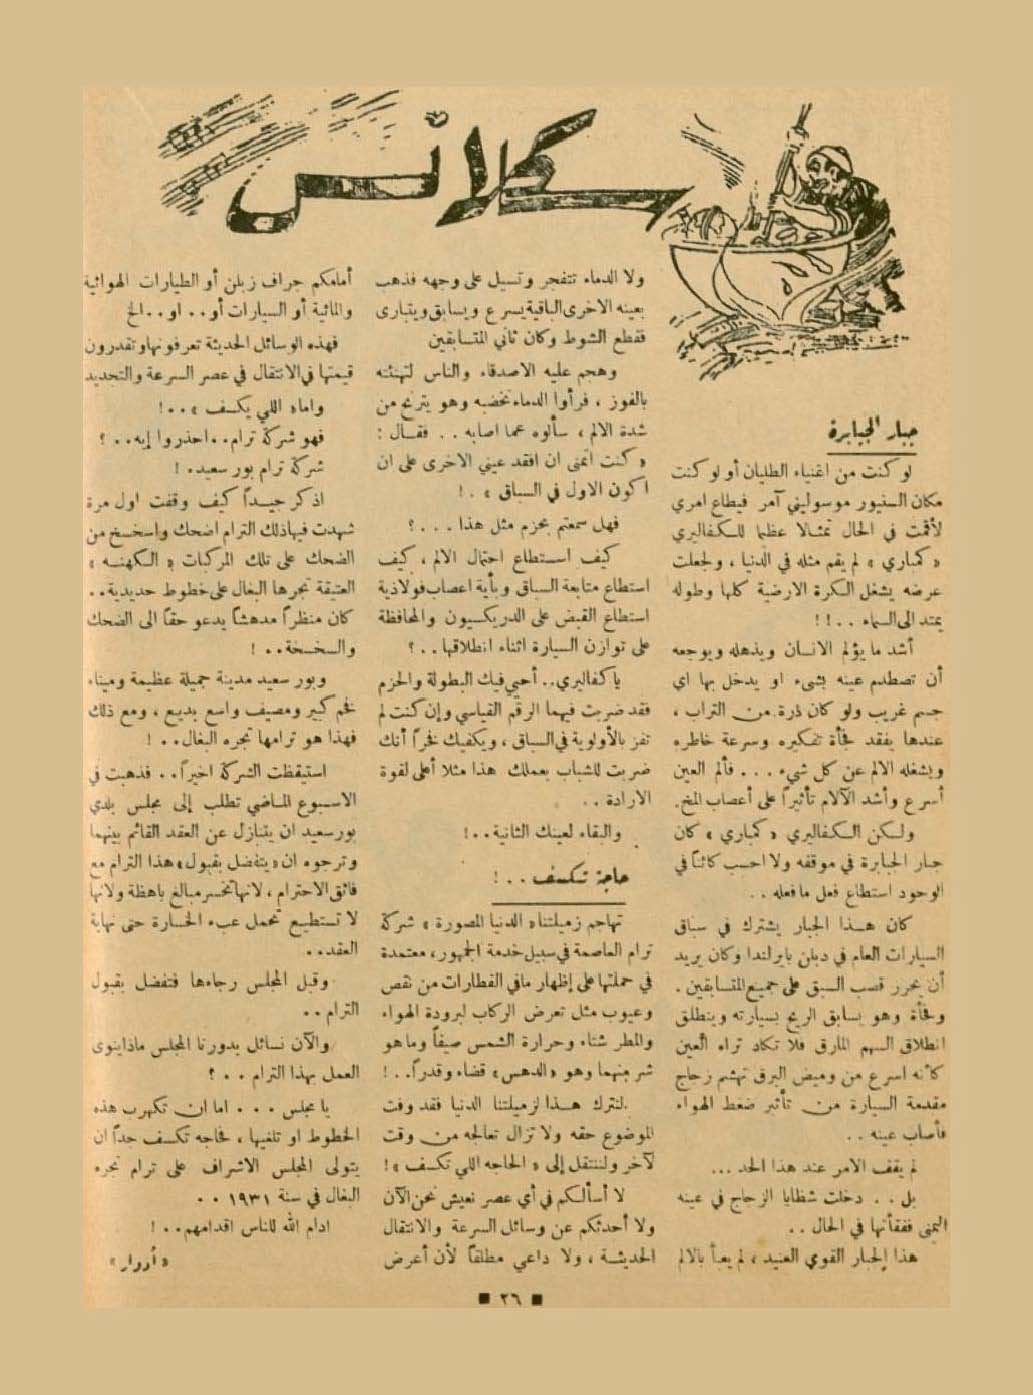 سكلانس
جبار الجبابرة
لو كنت من اغنياء الطليان أو لو كنت
مكان السنيور موسوليني آمر فيطاع امري
لأقمت في الحال تمثالا عظيما للسكفاليري
« كمباري » لم يقم مثله في الدنيا ، ولجعلت
عرضه يشغل الكرة الارضية كلها وطوله
يمتد الى السماء . . ! !
أشد ما يؤلم الانسان ويذهله ويوجعه
أن تصطدم عينه بشيء او يدخل بها اي
جسم غريب ولو كان ذرة من التراب ،
عندها يفقد فجأة تفكيره وسرعة خاطره
ويشغله الالم عن كل شيء . . . فألم العين
أسرع وأشد الآلام تأثيراً على أعصاب المخ.
ولكن السكفاليري « كمباري » كان
جبار الجبابرة في موقفه ولا احسب كائناً في
الوجود استطاع فعل ما فعله . .
كان هذا الجبار يشترك في سباق
السيارات العام في دبلن بايرلندا وكان يريد
أن يحرز قصب السبق على جميع المتسابقين .
وفجأة وهو يسابق الريح بسيارته وينطلق
انطلاق السهم المارق فلا تكاد تراه العين
كأنه اسرع من وميض البرق تهشم زجاج
مقدمة السيارة من تأثير ضغط الهواء
فأصاب عينه . .
لم يقف الامر عند هذا الحد ...
بل . . دخلت شظايا الزجاج في عينه
اليمنى ففقأتها في الحال . .
هذا الجبار القوي العنيد ، لم يعبأ بالالم
ولا الدماء تتفجر وتسيل على وجهه فذهب
بعينه الاخرى الباقية يسرع ويسابق ويتبارى
فقطع الشوط وكان ثاني المتسابقين
وهجم عليه الاصدقاء والناس لتهنئته
بالفوز ، فرأوا الدماء تخضبه وهو يترنح من
شدة الالم ، سألوه عما اصابه . . فقال :
« كنت اتمنى ان افقد عيني الاخرى على ان
اكون الاول في السباق » . !
فهل سمعتم بحزم مثل هذا . . . ؟
كيف استطاع احتمال الالم ، كيف
استطاع متابعة السباق وبأية اعصاب فولاذية
استطاع القبض على الدريكسيون والمحافظة
على توازن السيارة اثناء انطلاقها . . ؟
يا كفاليري . . أحيي فيك البطولة والحزم
فقد ضربت فيهما الرقم القياسي وإن كنت لم
تفز بالأولوية في السباق ، ويكفيك فخراً أنك
ضربت للشباب بعملك هذا مثلا أعلى لقوة
الارادة . .
والبقاء لعينك الثانية . . !
حاجة تكسف . . !
تهاجم زميلتنا « الدنيا المصورة » شركة
ترام العاصمة في سبيل خدمة الجمهور، معتمدة
في حملتها على إظهار ما في القطارات من نقص
وعيوب مثل تعرض الركاب لبرودة الهواء
والمطر شتاء وحرارة الشمس صيفاً وما هو
شر منهما وهو « الدهس » قضاء وقدراً . . !
لنترك هذا لزميلتنا الدنيا فقد وفت
الموضوع حقه ولا تزال تعالجه من وقت
لآخر ولننتقل إلى « الحاجه اللي تكسف » !
لا أسألكم في أي عصر نعيش نحن الآن
ولا أحدثكم عن وسائل السرعة والانتقال
الحديثة ، ولا داعي مطلقاً لأن أعرض
أمامكم جراف زبلن أو الطيارات الهوائية
والمائية أو السيارات أو . . او . . الخ
فهذه الوسائل الحديثة تعرفونها وتقدرون
قيمتها في الانتقال في عصر السرعة والتجديد
واما « اللي يكسف » . . !
فهو شركة ترام . . احذروا إيه . . ؟
شركة ترام بور سعيد . !
اذكر جيداً كيف وقفت اول مرة
شهدت فيها ذلك الترام اضحك واسخسخ من
الضحك على تلك المركبات « الكهنه »
العتيقة تجرها البغال على خطوط حديدية . .
كان منظراً مدهشاً يدعو حقاً الى الضحك
والسخسخة . . !
وبور سعيد مدينة جميلة عظيمة وميناء
فخم كبير ومصيف واسع بديع ، ومع ذلك
فهذا هو ترامها تجره البغال . . !
استيقظت الشركة اخيراً . . فذهبت في
الاسبوع الماضي تطلب إلى مجلس بلدي
بور سعيد ان يتنازل عن العقد القائم بينهما
وترجوه ان « يتفضل بقبول » هذا الترام مع
فائق الاحترام ، لانها تخسر مبالغ باهظة ولانها
لا تستطيع تحمل عبء الخسارة حتى نهاية
العقد . .
وقبل المجلس رجاءها فتفضل بقبول
الترام . .
والآن نسائل بدورنا المجلس ماذا ينوى
العمل بهذا الترام . . ؟
يا مجلس . . . اما ان تكهرب هذه
الخطوط او تلغيها ، فحاجه تكسف جداً ان
يتولى المجلس الاشراف على ترام تجره
البغال في سنة ١٩٣١ . .
ادام الله للناس اقدامهم . . !
«أزوار»
■ ٢٦ ■